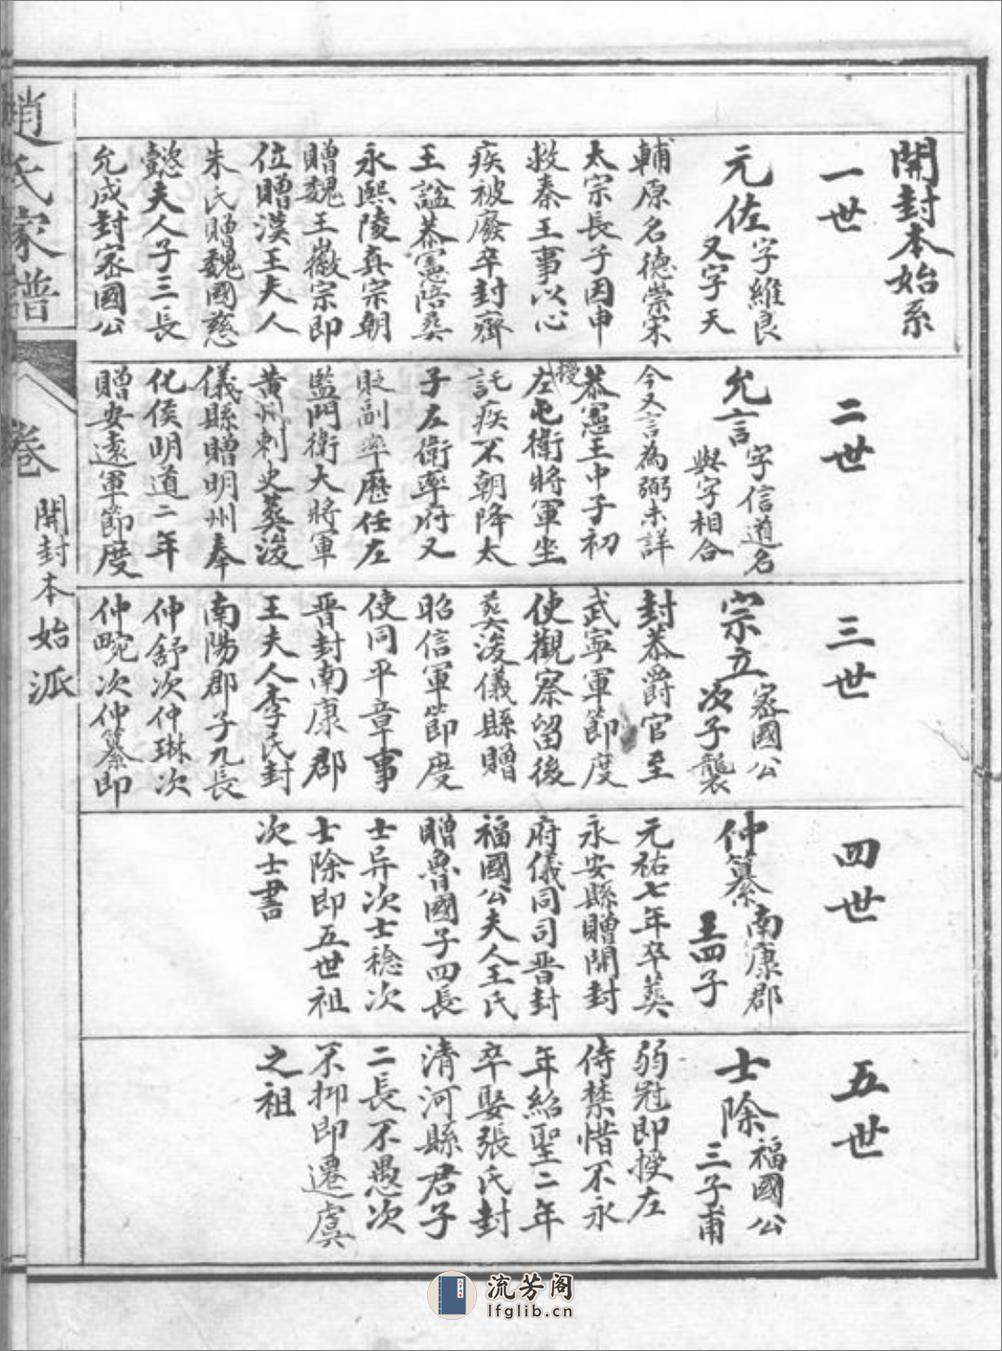 開封本始系
一世
元佐 字維良
又字天
輔原名德崇宋
太宗長子因申
救秦王事以心
疾被廢卒封齊
王諡恭憲陪葬
永熙陵真宗朝
贈魏王徽宗即
位贈漢王夫人
朱氏贈魏國慈
懿夫人子三長
允成封密國公
二世
允言 字信道名
與字相合
今又言為弼未詳
恭憲王中子初
授左屯衛將軍坐
託疾不朝降太
子左衛率府又
貶副率歷任左
監門衛大將軍
黃州刺史葬浚
儀縣贈明州奉
化侯明道二年
贈安遠軍節度
三世
宗立 密國公
次子襲
封恭爵官至
武寧軍節度
使觀察留後
葬浚儀縣贈
昭信軍節度
使同平章事
晋封南康郡
王夫人李氏封
南陽郡子九長
仲舒次仲琳次
仲畹次仲纂即
四世
仲纂 南康郡
王四子
元祐七年卒葬
永安縣贈開封
府儀同司晋封
福國公夫人王氏
贈魯國子四長
士异次士稔次
士除即五世祖
次士書
五世
士除 福國公
三子甫
弱冠即授左
侍禁惜不永
年紹聖二年
卒娶張氏封
清河縣君子
二長不愚次
不抑即遷虞
之祖
趙氏家譜
卷
開封本始派
流芳阁
lfglib.cn